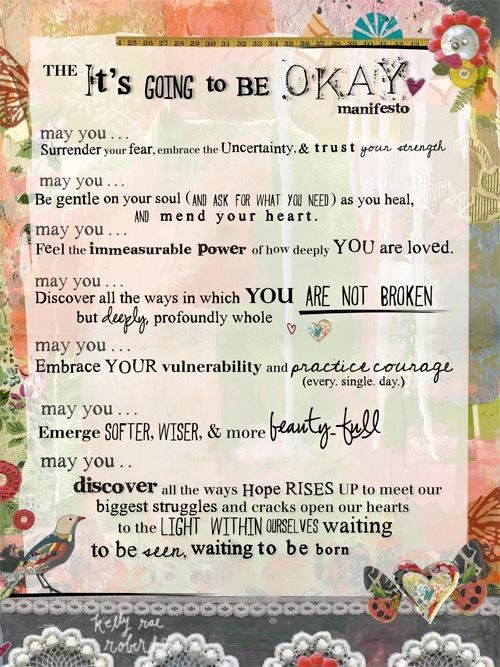 THE It's GOING to BE OKAY
manifesto
may you ...
Surrender your fear, embrace the Uncertainty, & trust your strength
may you ...
Be gentle on your soul (AND ASK FOR WHAT YOU NEED) as you heal,
AND mend your heart.
may you ...
Feel the immeasurable power of how deeply YOU are loved.
may you ...
Discover all the ways in which YOU ARE NOT BROKEN
but deeply, profoundly whole
may you ...
Embrace YOUR vulnerability and practice courage
(every. single. day.)
may you ...
Emerge SOFTER, WISER, & more beauty-full
may you ..
discover all the ways Hope RISES UP to meet our
biggest struggles and cracks open our hearts
to the LIGHT WITHIN OURSELVES waiting
to be seen, waiting to be born
kelly rae
roberts